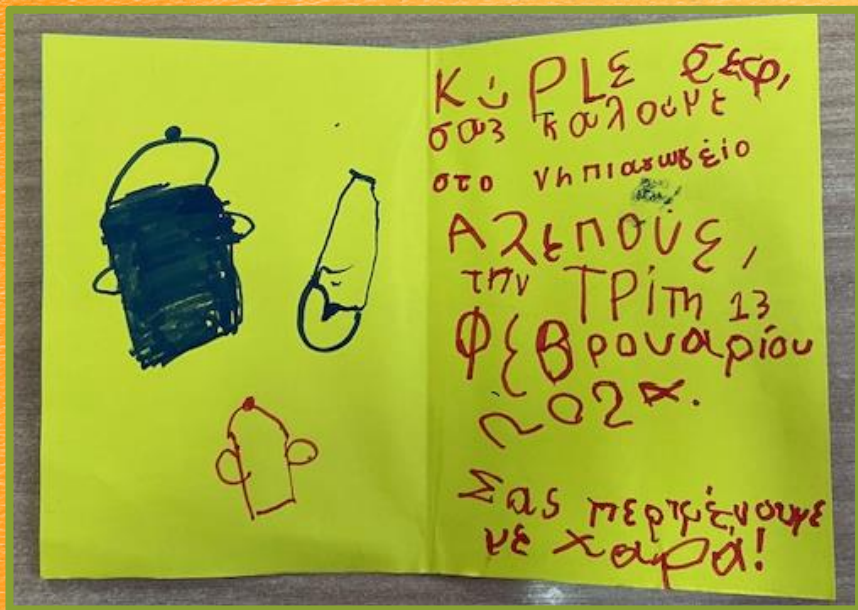 Κύριε σεφ,
σας καλούμε
στο νηπιαγωγείο
Αλεπούς,
την Τρίτη 13
Φεβρουαρίου
2024.
Σας περιμένουμε
με χαρά!